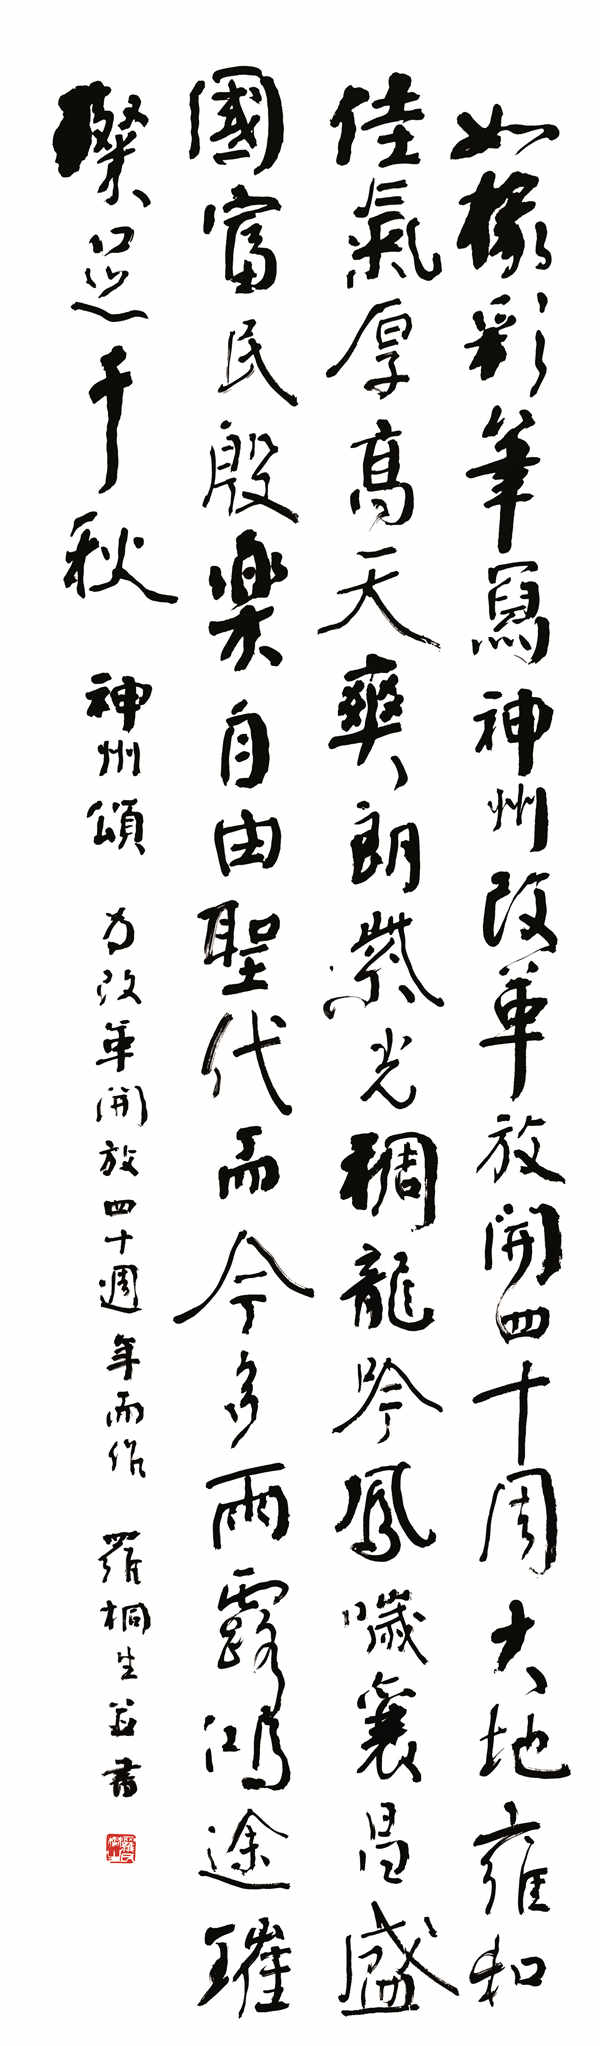 如椽彩筆寫神州改革放開四十周大地雍和
佳氣厚高天爽朗紫光稠龍吟鳳噦襄昌盛
國富民殷樂自由聖代而今多雨露鴻途璀
璨足千秋 神州頌 为改革開放四十週年而作 羅桐生並書